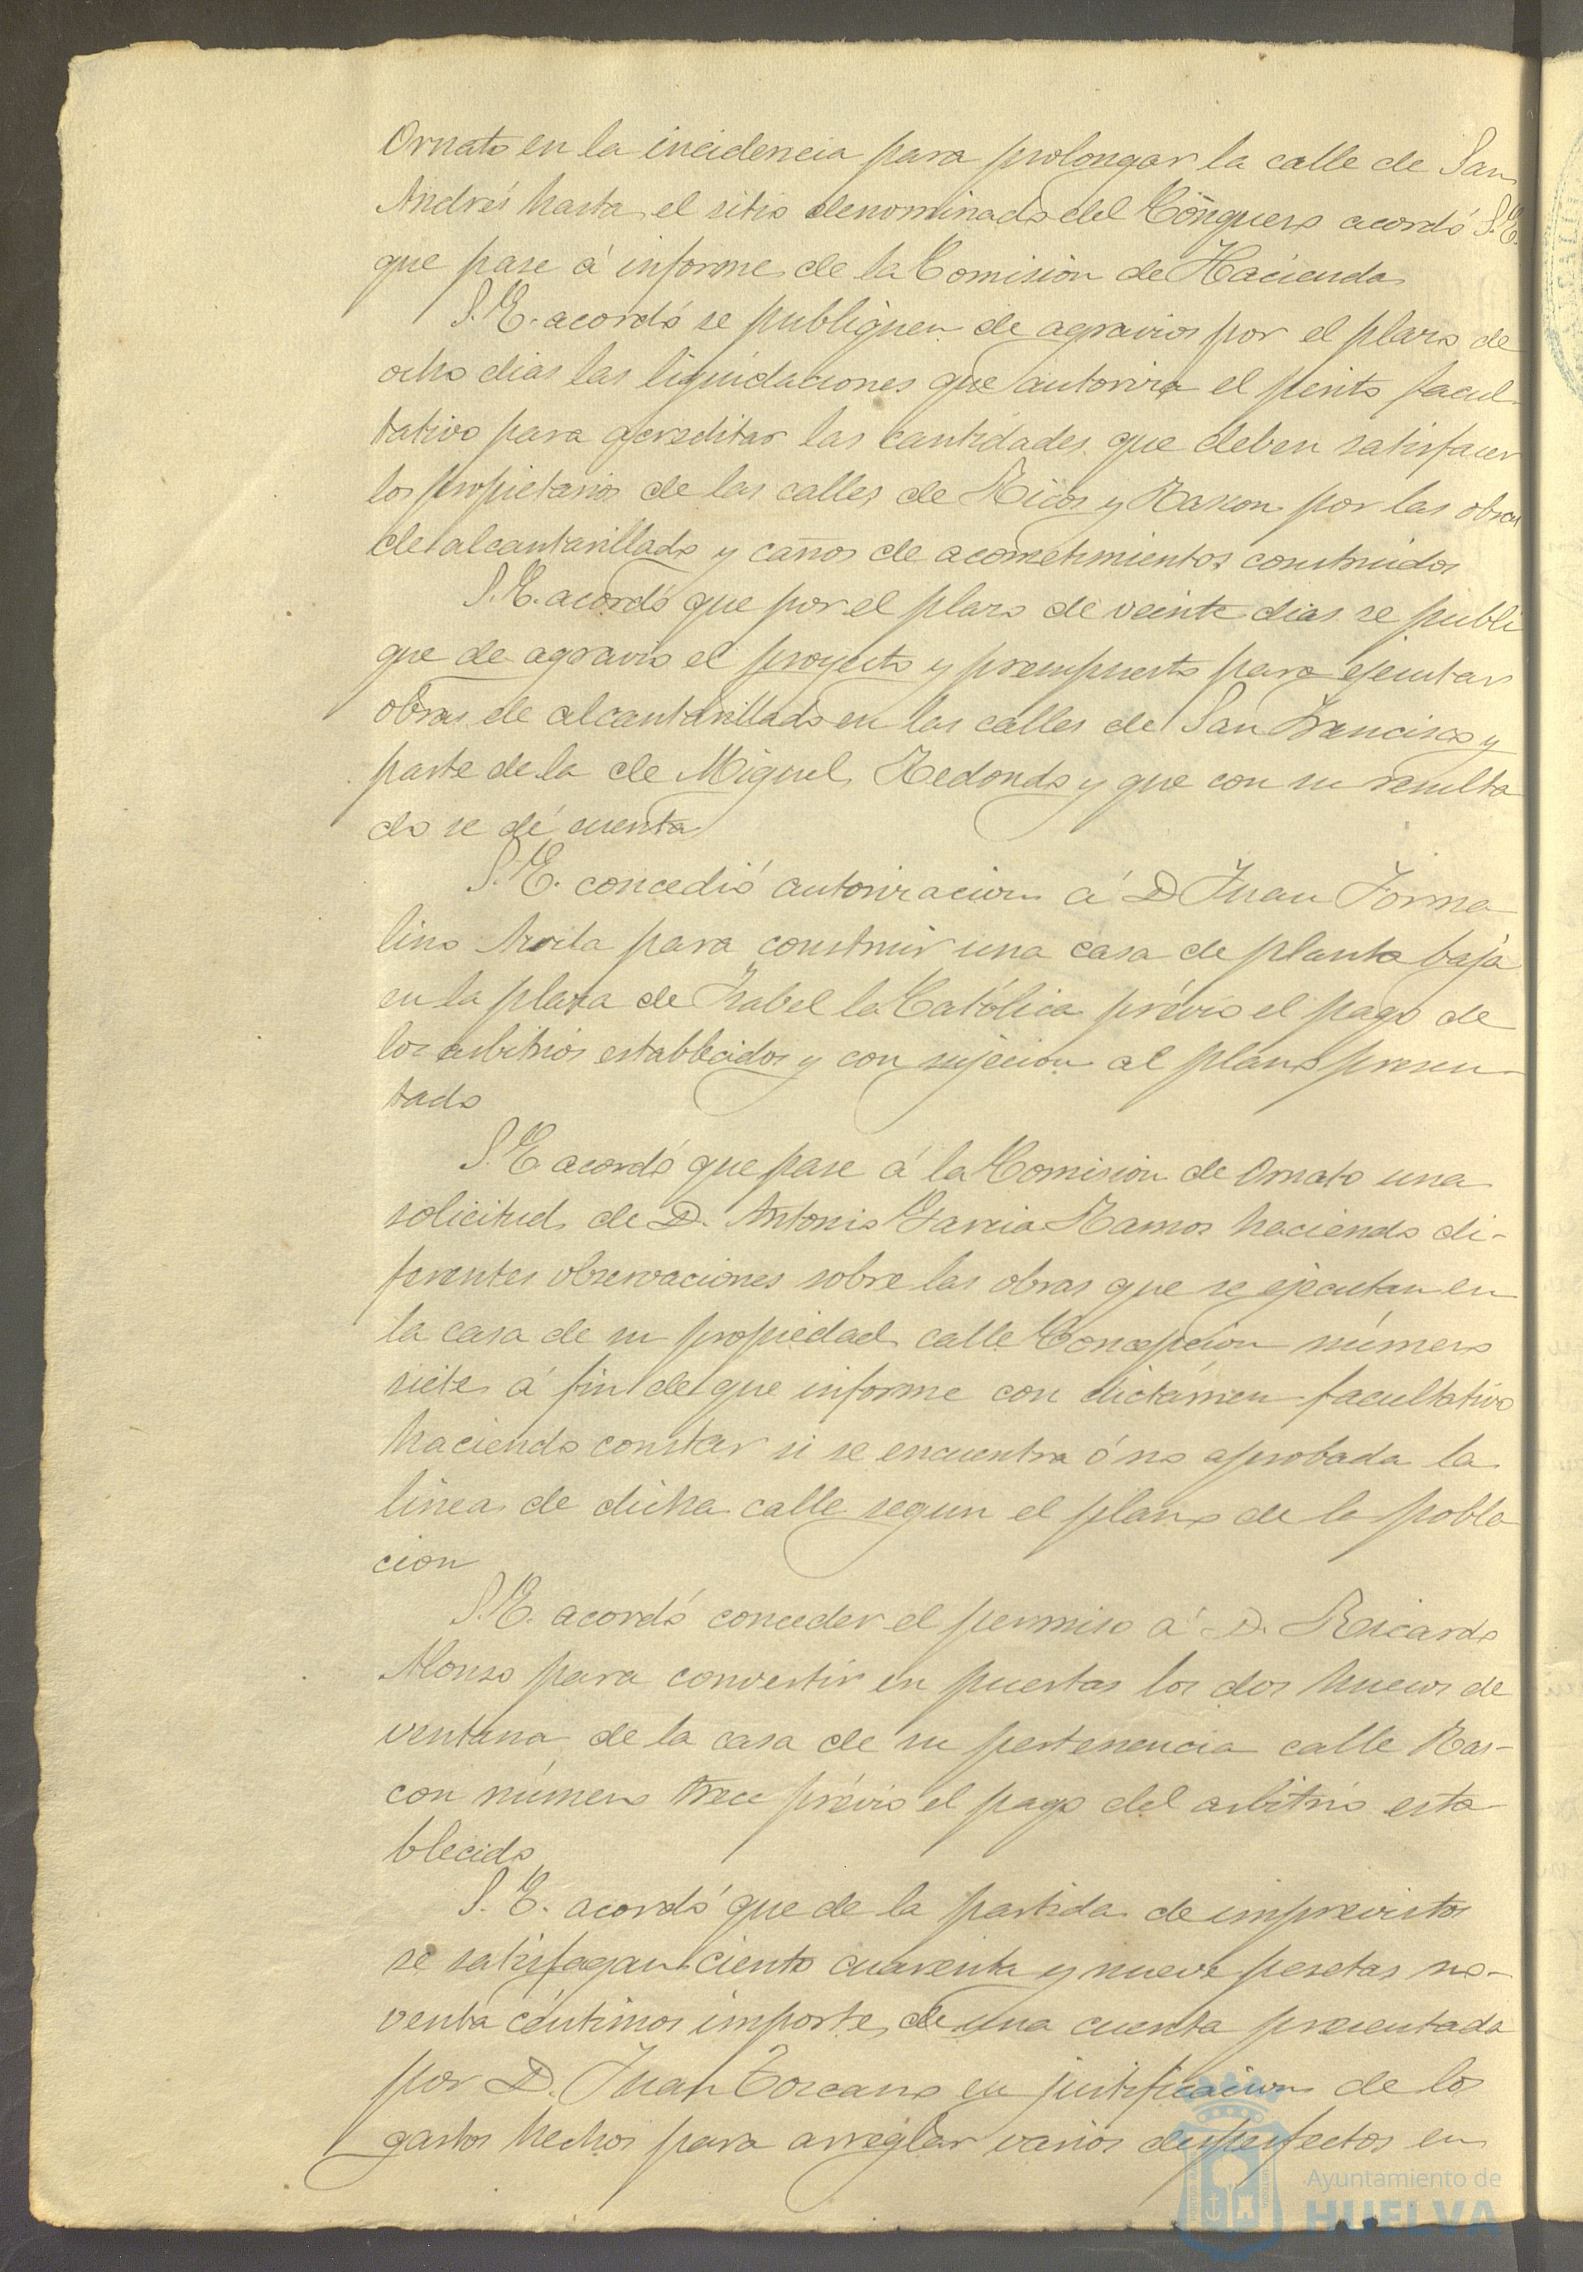 Ornato en la incidencia para prolongar la calle de San
Andrés hasta el sitio denominado del Conquero acordó S.E.
que pase á informe de la Comision de Hacienda
S.E. acordó se publiquen de agravios por el plazo de
ocho dias las liquidaciones que autoriza el perito facul-
tativo para acreditar las cantidades que deben satisfacer
los propietarios de las calles de Ricos y Rascon por las obras
de alcantarillado y caños de acometimientos construidos
S.E. acordó que por el plazo de veinte dias se publi
que de agravio el proyecto y presupuesto para ejecutar
obras de alcantarillado en las calles de San Francisco y
parte de la de Miguel Redondo y que con su resulta
do se dé cuenta
S.E. concedió autorizacion á D Juan Forna
lino para construir una casa de planta baja
en la plaza de Isabel la Católica prévio el pago de
los arbitrios establecidos y con sujecion al plano presen-
tado
S.E. acordó que pase á la Comision de Ornato una
solicitud de D. Antonio Garcia Ramos haciendo di-
ferentes observaciones sobre las obras que se ejecutan en
la casa de su propiedad calle Concepcion número
siete á fin de que informe con dictámen facultativo
haciendo constar si se encuentra ó no aprobada la
linea de dicha calle segun el plano de la pobla
cion
S.E. acordó conceder el permiso á D. Ricardo
Alonso para convertir en puertas los dos huecos de
ventana de la casa de su pertenencia calle Ras-
con número trece prévio el pago del arbitrio esta-
blecido
S.E. acordó que de la partida de imprevistos
se satisfagan ciento cuarenta y nueve pesetas no-
venta céntimos importe de una cuenta presentada
por D. Juan Toscano en justificacion de los
gastos hechos para arreglar varios desperfectos en
Ayuntamiento de
HUELVA